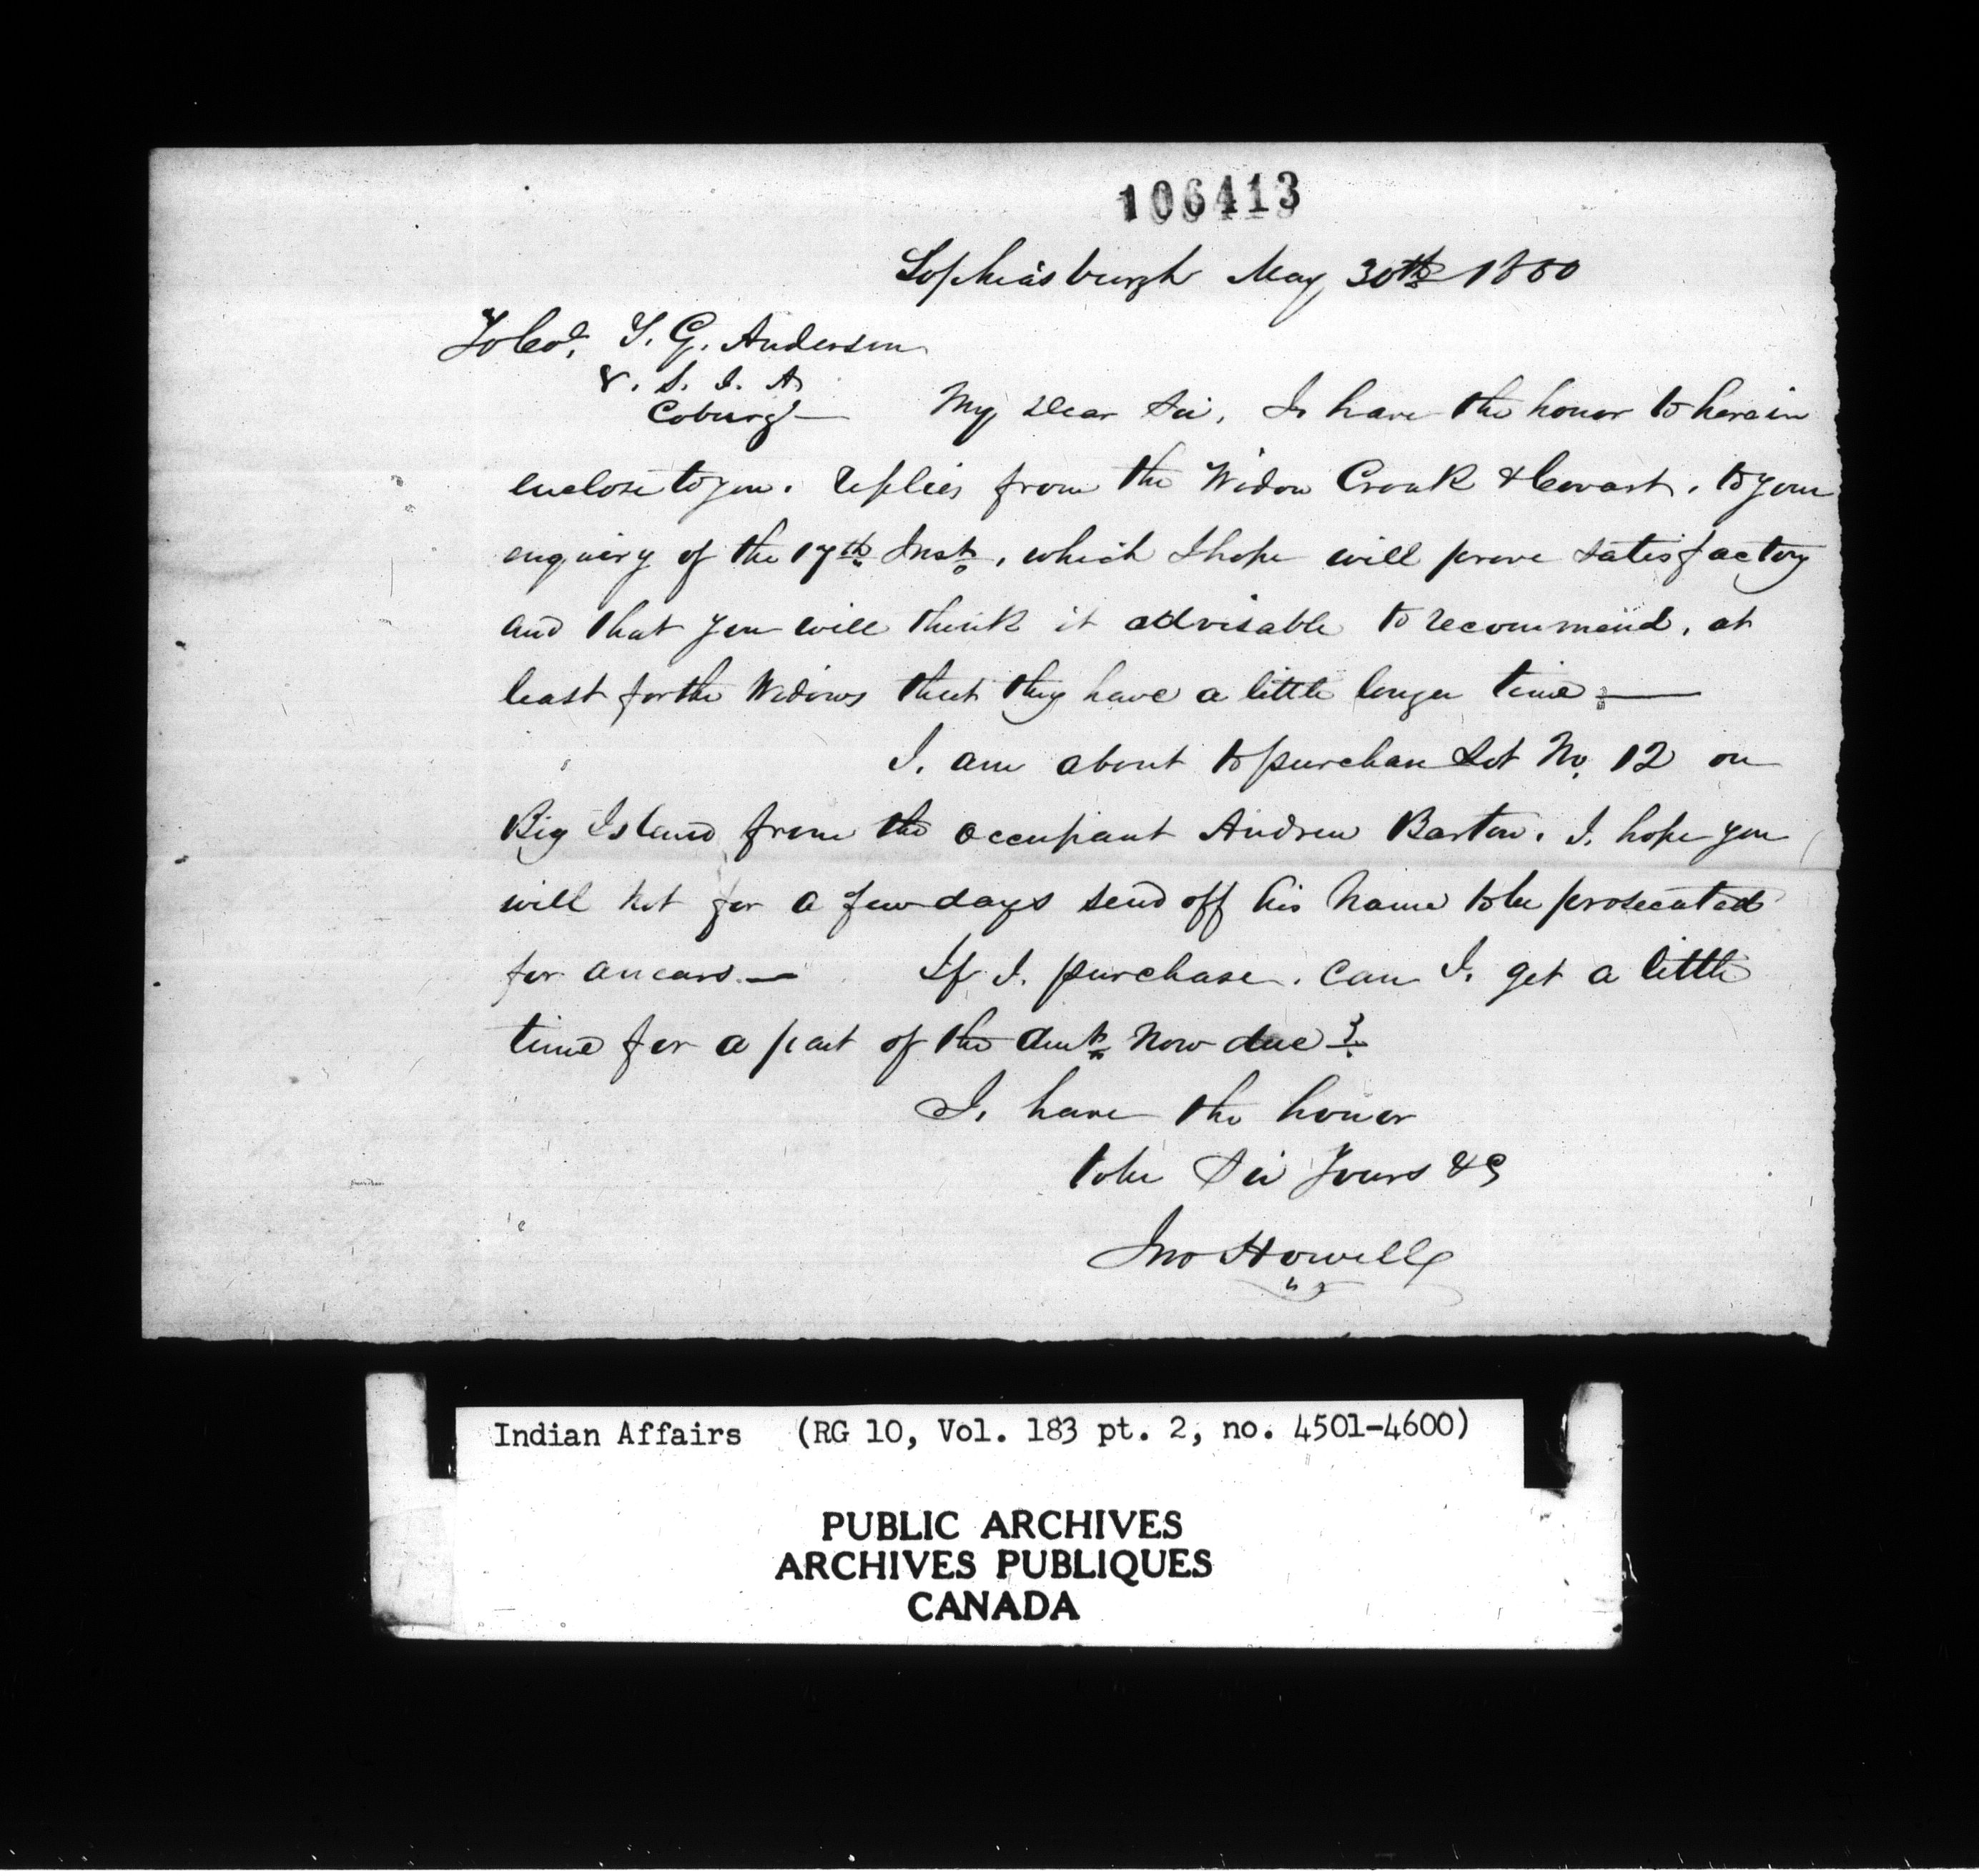 106413
Sophiasburgh May 30th 1850
To Col. T. G. Anderson
V. S. I. A
Coburg
My Dear Sir, I have the honor to herein
enclose to you. replies from the Widow Cronk & Covart, to your
enquiry of the 17th Inst, which I hope will prove satisfactory
and that you will think it advisable to recommend, at
least for the Widows that they have a little longer time.
I. am about to purchase Lot No. 12 on
Big Island from the occupant Andrew Barton. I. hope you
will not for a few days send off his name to be prosecuted
for arrears.—
If I. purchase. can I. get a little
time for a part of the Amt now due?
I, have the honor
to be Sir Yours &c
Jno Howell
Indian Affairs (RG 10, Vol. 183 pt. 2, no. 4501-4600)
PUBLIC ARCHIVES
ARCHIVES PUBLIQUES
CANADA